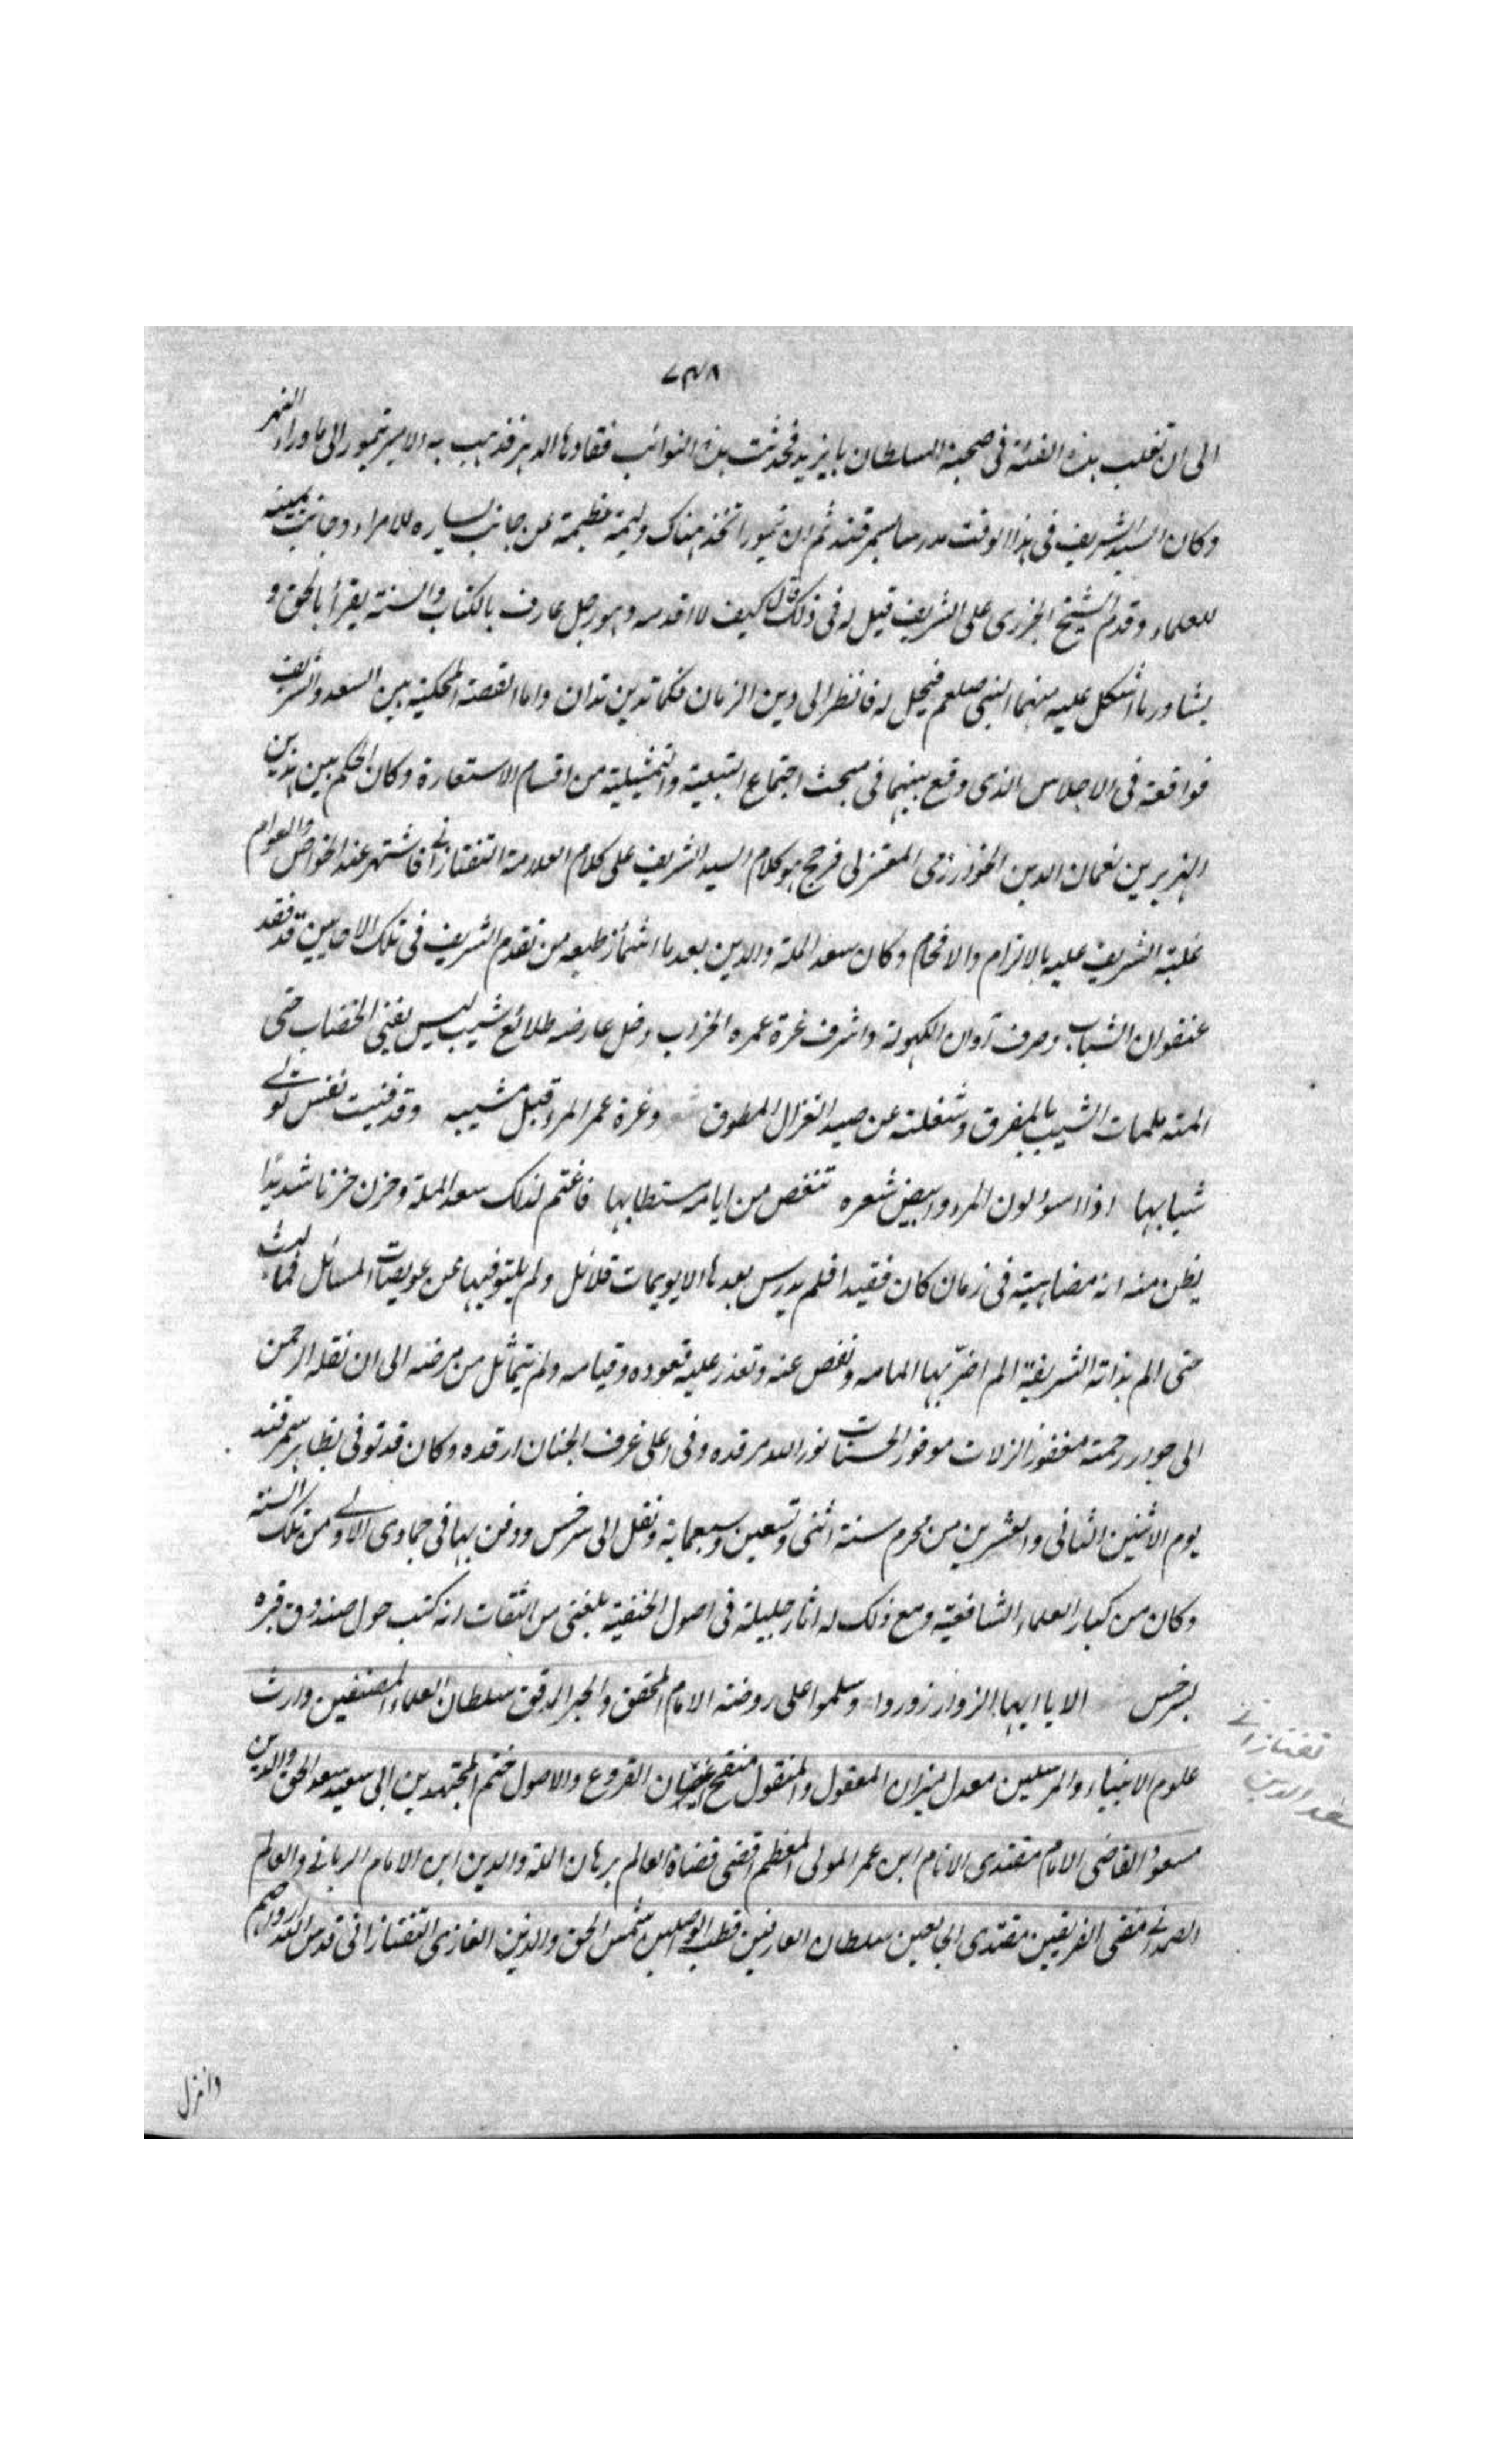 ٧٣٨
الى ان تغلب هذه الفئة فى صحبة السلطان بايزيد فحدثت هذه النوائب فقاوها الدهر فذهب به الامير تيمور الى ماوراء النهر
وكان السيد الشريف فى هذا الوقت مدرسا بسمرقند ثم ان تيمورا تخذ هناك وليمة عظيمة عن جانب يساره للامراء وجانب يمينه
للعلماء وقدم الشيخ الجزرى على الشريف قيل له فى ذلك قال كيف لا اقدمه وهو رجل عارف بالكتاب والسنة يقرأ بالحق و
يشاور ما اشكل عليه منهما النبى صلعم فيحل له فانظر الى دين الزمان فكما تدين تدان واما القصة المحكية بين السعد والشريف
فواقعة فى الاجلاس الذى وقع بينهما فى مبحث اجتماع التبعية والتمثيلية من اقسام الاستعارة وكان الحكم بين هذين
الهزبرين نعمان الدين الخوارزمى المعتزلى فرجح هو كلام السيد الشريف على كلام العلامة التفتازانى فاشتهر عند الخواص والعوام
غلبة الشريف عليه بالالزام والافحام وكان سعد الملة والدين بعد ما اشمأز طبعه من تقدم الشريف فى تلك الاحايين قد فقد
عنفوان الشباب وصرف آوان الكهولة واشرف غرة عمره الخراب دخل عارضه طلائع شيب ليس يغنى الخضاب حتى
المته ملمات الشيب بالمفرق وشغلته عن صيد الغزال المطوق وغرة عمر المرء قبل مشيبه وقد فنيت نفس تولى
شبابها اذا اسود لون المرء وابيض شعره تنغص من ايامه مستطابها فاغتم لذلك سعد الملة وحزن حزنا شديدا
يظن منه انه مضاهيه فى زمان كان فقيدا فلم يدرس بعدها الا يويمات قلائل ولم يفيها عن عويصات المسائل فما لبث
حتى الم بذاته الشريفة الم اضر بها المامه ونغص عنه وتعذر عليه قعوده وقيامه ولم يتماثل من مرضه الى ان نقله الرحمن
الى جوار رحمته مغفور الزلات موفور الحسنات نور الله مرقده وفى اعلى غرف الجنان ارقده وكان قد توفى بظاهر سمرقند
يوم الاثنين الثانى والعشرين من محرم سنة اثنى وتسعين وسبعماية ونقل الى سرخس ودفن بها فى جمادى الاولى من تلك السنة
وكان من كبار العلماء الشافعية ومع ذلك له اثار جليلة فى اصول الحنفية بلغنى من الثقات انه كتب حول صندوق قبره
بسرخس الا يا ايها الزوار زوروا وسلموا على روضة الامام المحقق والحبر المدقق سلطان العلماء المصنفين وارث
علوم الانبياء والمرسلين معدل ميزان المعقول والمنقول منقح اغصان الفروع والاصول ختم المجتهدين ابى سعيد سعد الحق والدين
مسعود القاضى الامام مقتدى الانام ابن عمر المولى المعظم اقضى قضاة العالم برهان الملة والدين ابن الامام الربانى والعالم
الصمدانى مفتى الفريقين مقتدى سلطان العارفين قطب الواصلين شمس الحق والدين الغازى التفتازانى قدس الله ارواحهم
تفتازانى
سعد الدين
وانزل